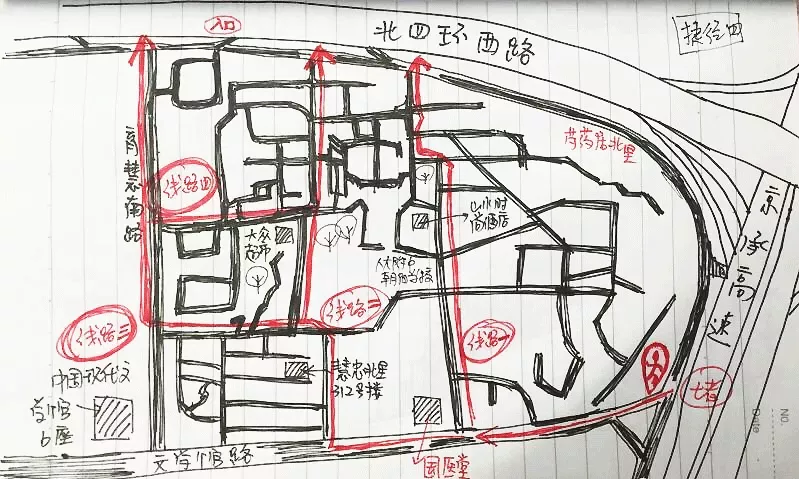 入口
北四环西路
捷径四
育慧南路
芍药居北里
线路四
山水时
尚酒店
大众
超市
京承高速
人大附中
朝阳学校
线路二
线路三
线路一
中国现代文
学馆
B座
慧忠北里
312号楼
七堵
No.
Date
文学馆路
国医堂